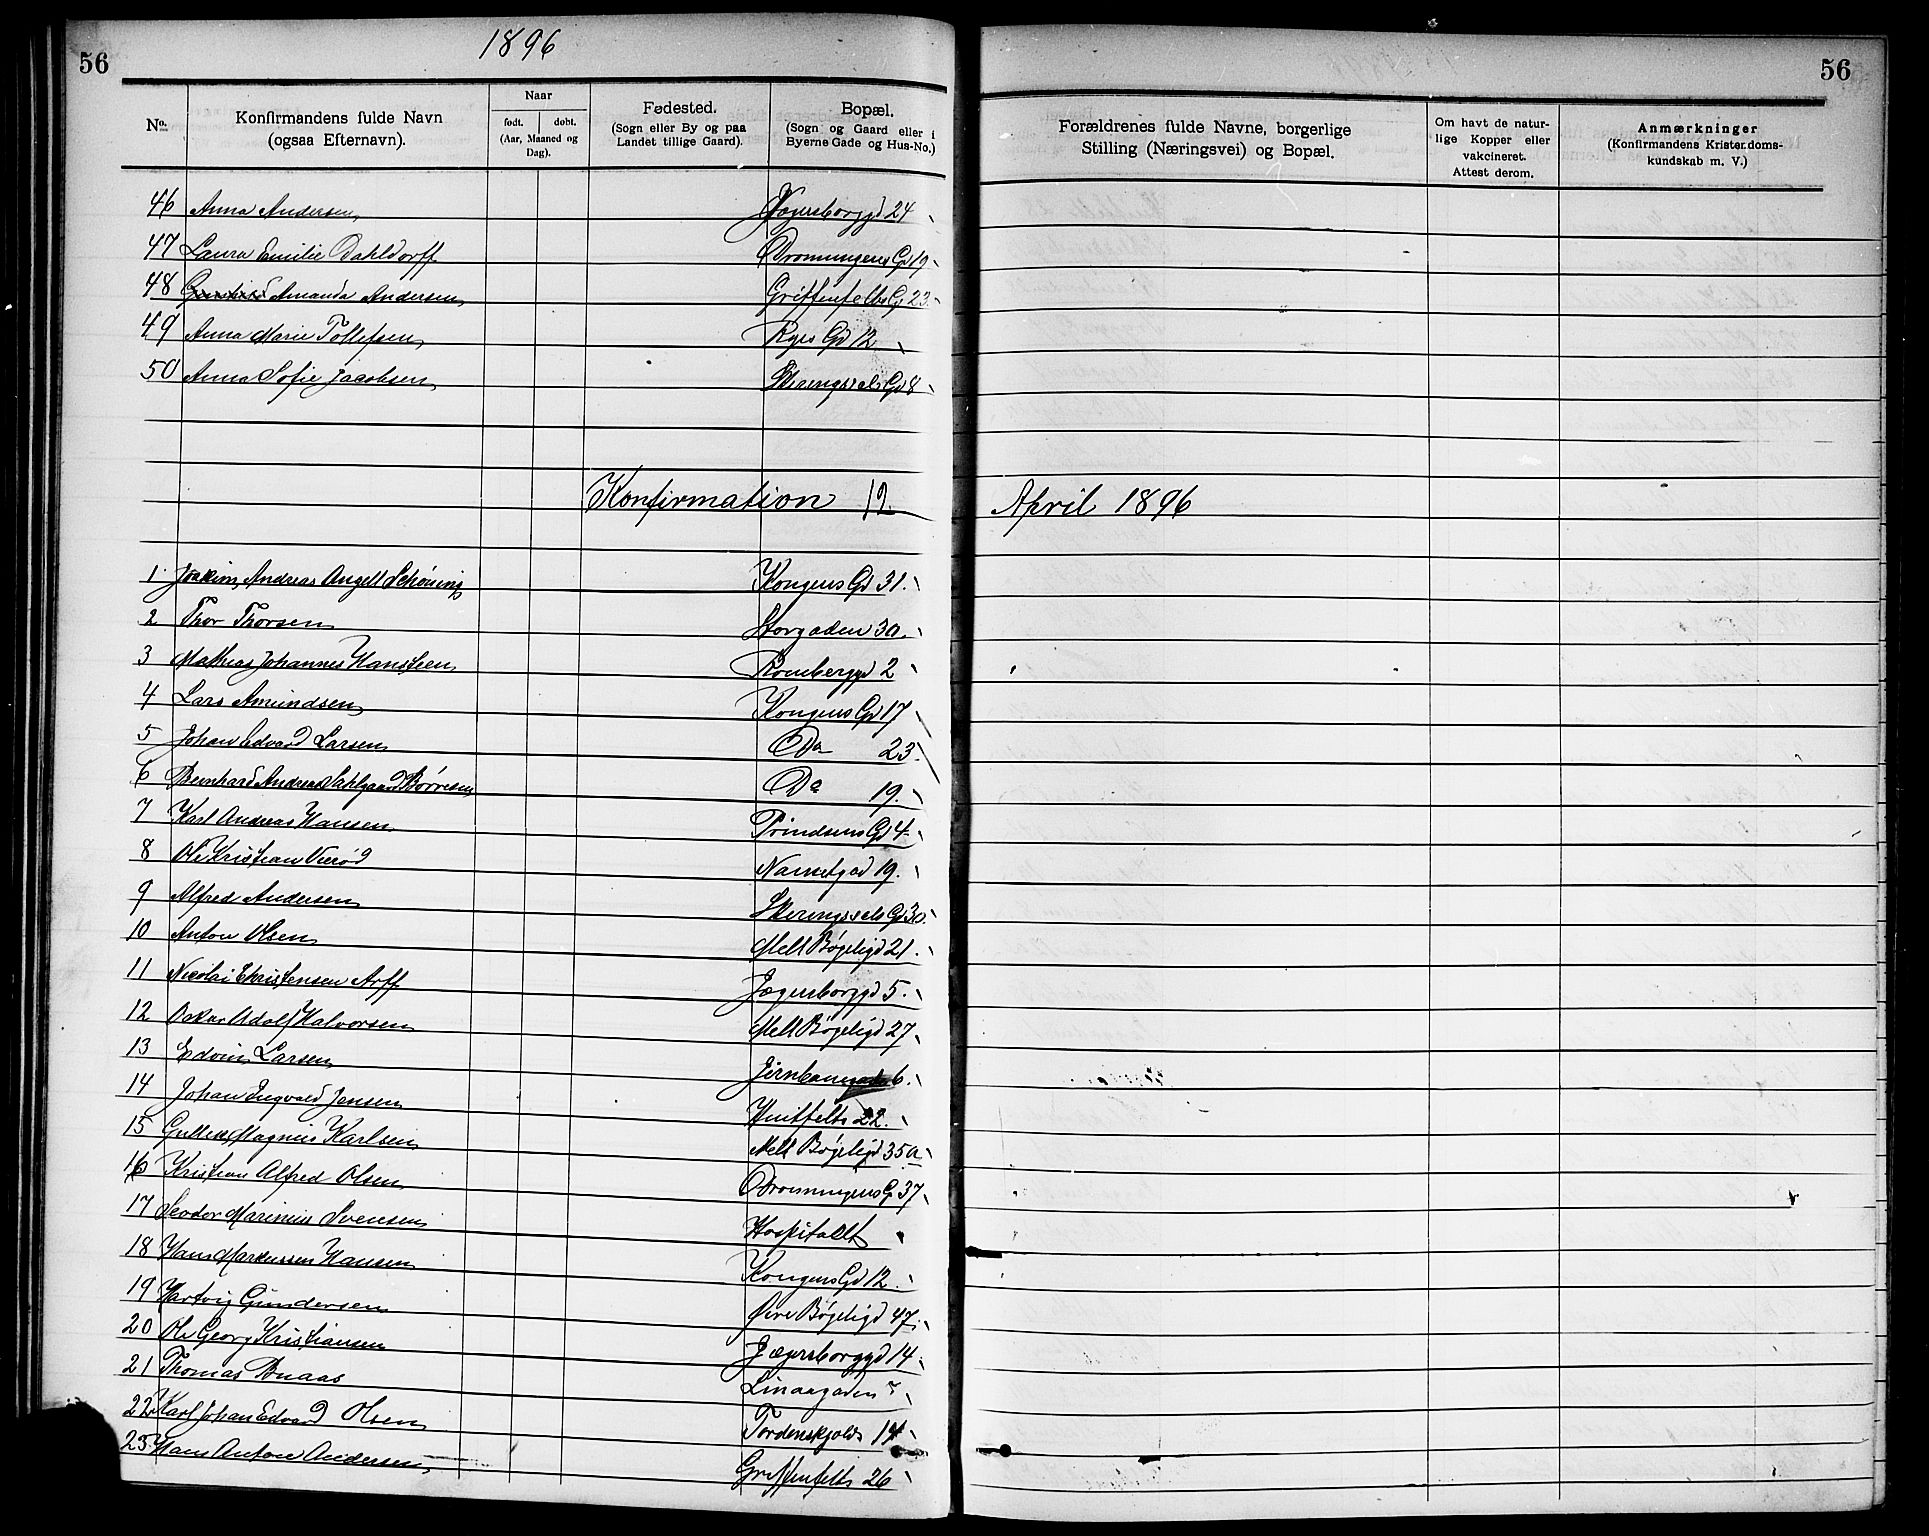 1896
56
56
No.
Konfirmandens fulde Navn
(ogsaa Efternavn).
Naar
født. døbt.
(Aar, Maaned og
Dag).
Fødested.
(Sogn eller By og paa
Landet tillige Gaard).
Bopæl.
(Sogn og Gaard eller i
Byerne Gade og Hus-No.)
Forældrenes fulde Navne, borgerlige
Stilling (Næringsvei) og Bopæl.
Om havt de natur-
lige Kopper eller
vakcineret.
Attest derom.
Anmærkninger
(Konfirmandens Kristendoms-
kundskab m. V.)
46 Anna Andersen Jægersborggd 24
47 Laura Emilie Dahldorff Dronningens Gd 19
48 Amanda Andersen Griffenfelts Gd 23
49 Anna Marie Tollefsen Ryes Gd 12
50 Anna Sofie Jacobsen Skiringssals Gd 8
Konfirmation 12 April 1896
1 Joakim Andreas Angell Schöning Kongens Gd 31
2 Thor Thorsen Storgaden 30
3 Mathias Johannes Hansteen Rombergsgd 2
4 Lars Amundsen Kongens Gd 17
5 Johan Edvard Larsen Do 23
6 Bernhard Andreas Dahlgaard Børresen Do 19
7 Karl Andreas Hansen Prindsens Gd 4
8 Ole Kristian Vierød Nansetgad 19
9 Alfred Andersen Skiringssals Gd 30
10 Anton Olsen Mell Bøgeligd 21
11 Nicolai Christensen Arff Jægersborggd 5
12 Oskar Adolf Halvorsen Mell Bøgeligd 27
13 Edvin Larsen Jernbanegaden 6
14 Johan Ingvald Jensen Huitfelts 22
15 Magnus Karlsen Mell Bøgeligd 35a
16 Kristian Alfred Olsen Dronningens G 37
17 Teodor Marinius Svensen Hospitalet
18 Hans Markussen Hansen Kongens Gd 12
19 Hartvig Gundersen Øvre Bøgeligd 47
20 Ole Georg Kristiansen Jægersborggd 14
21 Thomas Bnaas Linaagaden 7
22 Karl Johan Edvard Olsen Tordenskjolds 14
23 Hans Anton Andersen Griffenfelts 26